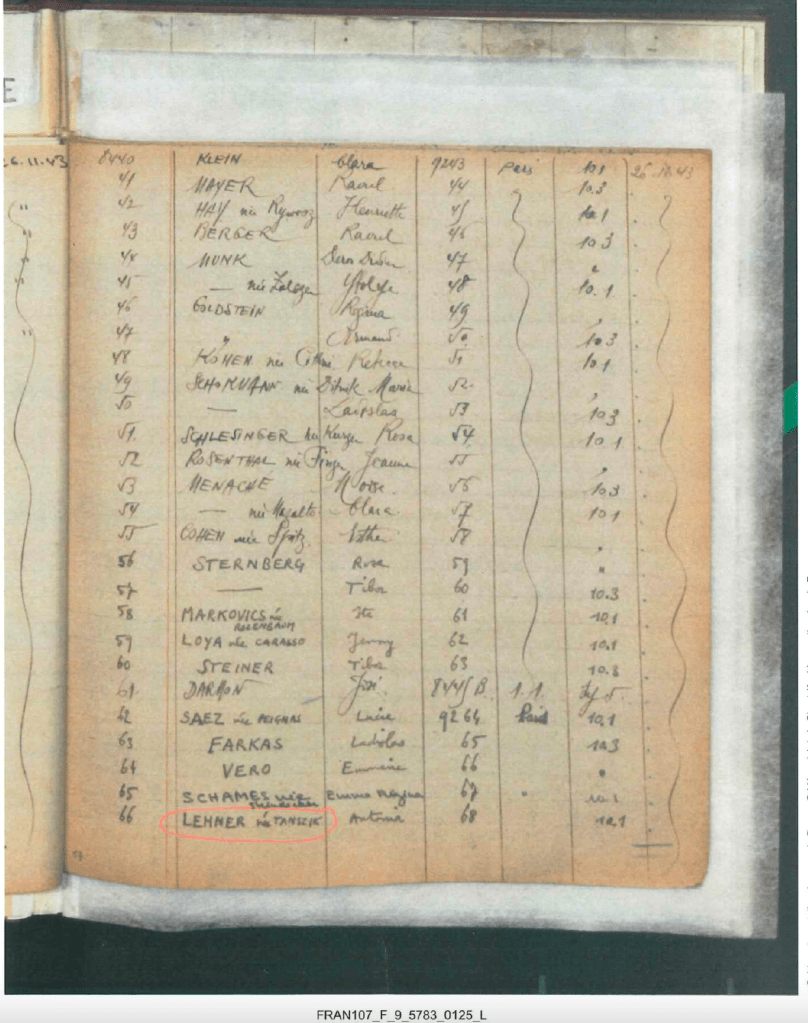 E
26.11.43 8440 KLEIN Clara 9243 Paris 10.1 26.11.43
41 MAYER Raoul 44 10.3
" 42 HAY née Rywosz Henriette 45 10.1
43 BERGER Raoul 46 10.3
" 44 MUNK 47 "
45 — née 48 10.1
46 GOLDSTEIN Regina 49 "
" 47 " Armand 50 10.3
48 KOHEN née Rebecca 51 10.1
49 née Maria 52 "
50 — Ladislas 53 10.3
51 SCHLESINGER née Rosa 54 10.1
52 ROSENTHAL née Jeanne 55 "
53 MENACHÉ Moïse 56 10.3
54 — née Clara 57 10.1
55 COHEN née Spatz Esther 58 "
56 STERNBERG Rosa 59 "
57 — Tibor 60 10.3
58 MARKOVICS née ROZENBAUM 61 10.1
59 LOYA née CARASSO Jenny 62 10.1
60 STEINER Tibor 63 10.3
61 DARMON 8445 B 1.1.
62 SAEZ née Lucie 9264 Paris 10.1
63 FARKAS Ladislas 65 10.3
64 VERO 66 "
65 SCHAMES née Emma 67 " 10.1
66 LEHNER née TANSZIK 68 10.1
FRAN107_F_9_5783_0125_L